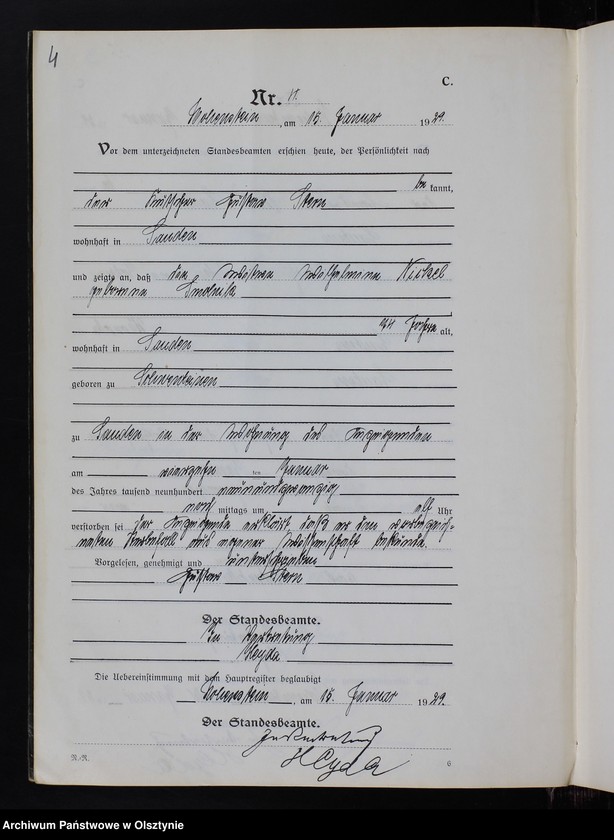 4
C.
Nr. 4.
am 15. Januar 1929.
Vor dem unterzeichneten Standesbeamten erschien heute, der Persönlichkeit nach
be kannt,
der Kutscher Gustav Stern
wohnhaft in Sanden
und zeigte an, daß die Wilhelmine
geborene
Jahre alt,
wohnhaft in Sanden
geboren zu
zu Sanden in der Wohnung des Anzeigenden
am vierzehn ten Januar
des Jahres tausend neunhundert neunundzwanzig
nach mittags um elf Uhr
verstorben sei der Anzeigende erklärt daß er den vorbezeich-
neten Sterbefall aus eigener Wissenschaft bekunde.
Vorgelesen, genehmigt und unterschrieben
Gustav Stern
Der Standesbeamte.
In Vertretung
Heyda
Die Uebereinstimmung mit dem Hauptregister beglaubigt
am 15. Januar 1929.
Der Standesbeamte.
In Vertretung
Heyda
R./R.
6
Archiwum Państwowe w Olsztynie